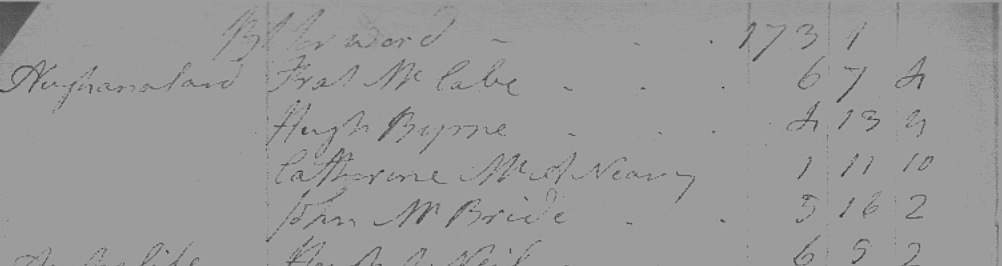 Bt forward - . . 173 1
Aughanalard Frat Mc Cabe . . . 6 7 4
Hugh Byrne . . . 4 13 9
Catherine Mc Neany 1 11 10
John Mc Bride . . 5 16 2
Hugh O Neil 6 5 2